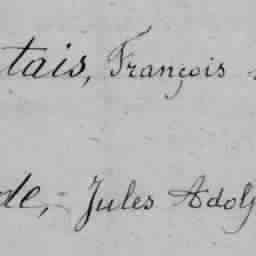 tais, François
de, Jules Adolp